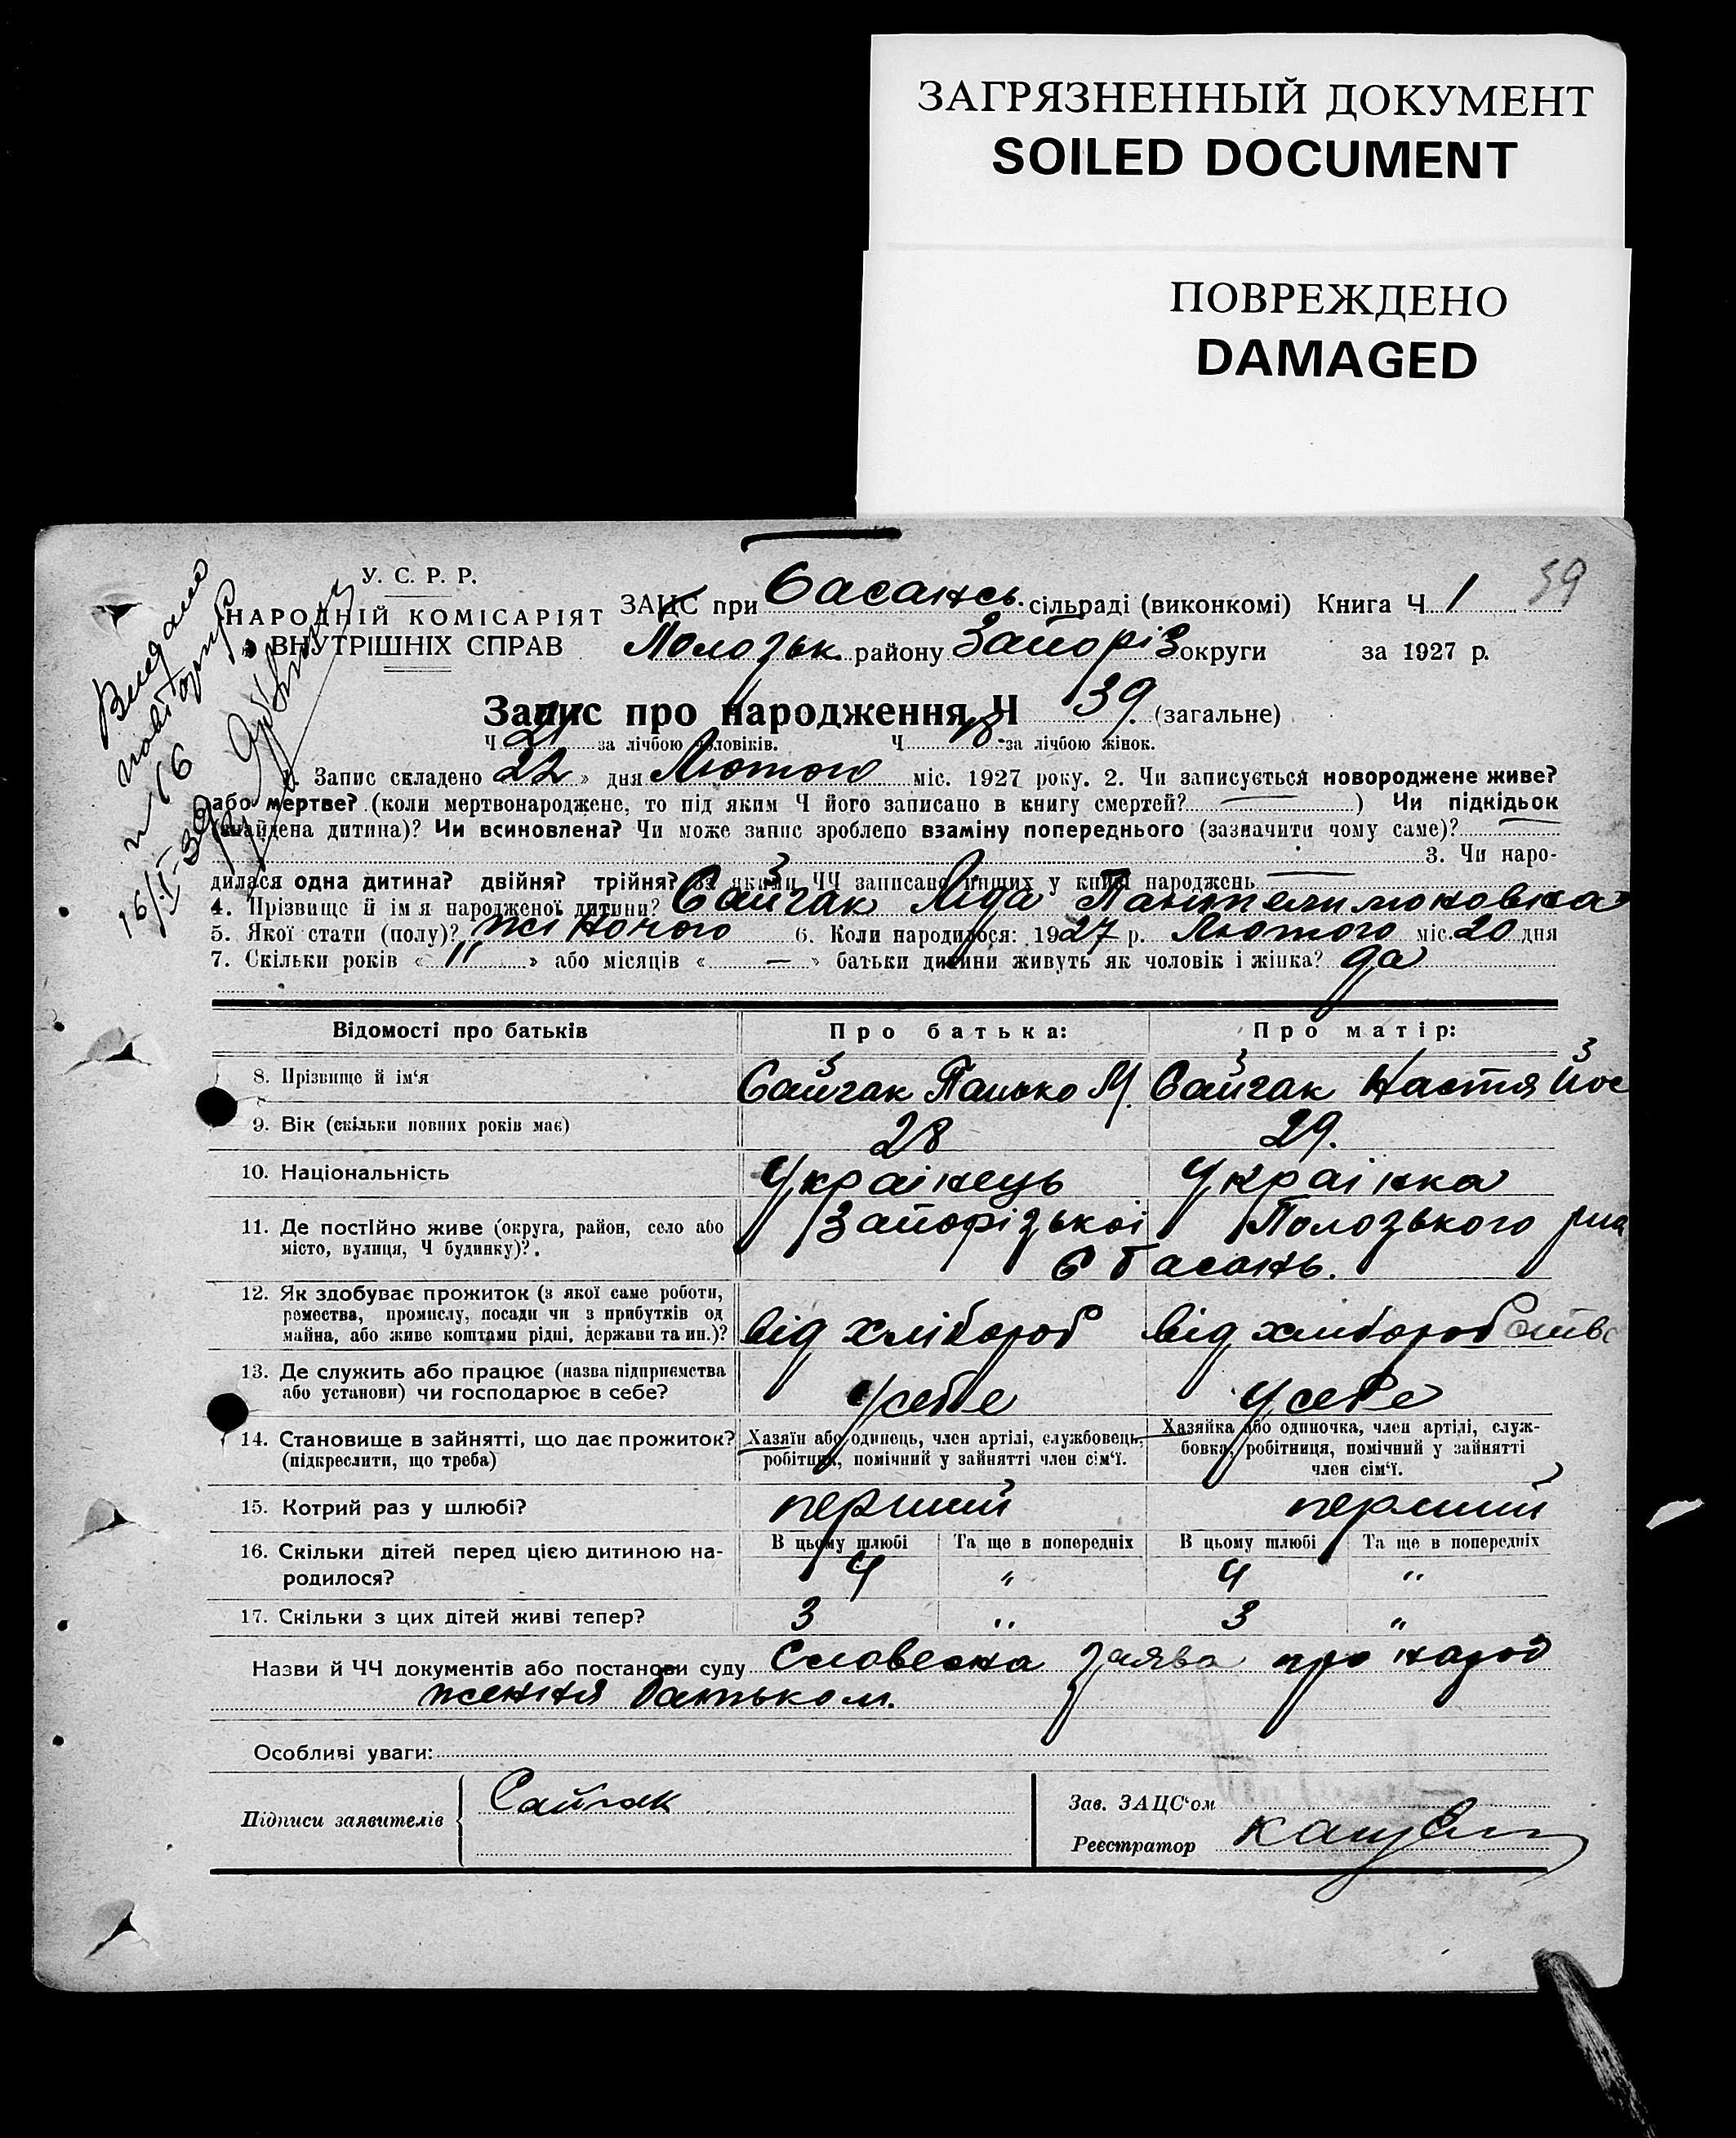 ЗАГРЯЗНЕННЫЙ ДОКУМЕНТ
SOILED DOCUMENT
ПОВРЕЖДЕНО
DAMAGED
39
У. С. Р. Р.
НАРОДНІЙ КОМІСАРІЯТ
ВНУТРІШНІХ СПРАВ
Видано
повторну
16
ЗАЦС при Басансь. сільраді (виконкомі) Книга Ч 1
Полозьк. району Запоріз округи за 1927 р.
Запис про народження Ч 39 (загальне)
Ч 21 за лічбою чоловіків. Ч 18 за лічбою жінок.
1. Запис складено 22 » дня Лютого міс. 1927 року. 2. Чи записується новороджене живе?
або мертве? (коли мертвонароджене, то під яким Ч його записано в книгу смертей? ) Чи підкідьок
(знайдена дитина)? Чи всиновлена? Чи може запис зроблено взаміну попереднього (зазначити чому саме)?
3. Чи наро-
дилася одна дитина? двійня? трійня? За якими ЧЧ записано инших у книзі народжень
4. Прізвище й ім я народженої дитини? Сайгак Ліда Пантелимоновна
5. Якої стати (полу)? жіночого 6. Коли народилося: 1927 р. Лютого міс. 20 дня
7. Скільки років « 11 » або місяців « — » батьки дитини живуть як чоловік і жінка? да
Відомості про батьків Про батька: Про матір:
8. Прізвище й ім‘я Сайгак Панько М. Сайгак Настя Йос
9. Вік (скільки повних років має) 28 29.
10. Національність Українець Українка
11. Де постійно живе (округа, район, село або Запорізької Полозького
місто, вулиця, Ч будинку)?. с Басань.
12. Як здобуває прожиток (з якої саме роботи,
ремества, промислу, посади чи з прибутків од
майна, або живе коштами рідні, держави та ин.)? від хлібороб від хлібороб
13. Де служить або працює (назва підприємства
або установи) чи господарює в себе? У себе У себе
14. Становище в зайнятті, що дає прожиток? Хазяїн або одинець, член артілі, службовець, Хазяйка або одиночка, член артілі, служ-
(підкреслити, що треба) робітник, помічний у зайнятті член сім‘ї. бовка, робітниця, помічний у зайнятті
член сім‘ї.
15. Котрий раз у шлюбі? перший перший
16. Скільки дітей перед цією дитиною на- В цьому шлюбі Та ще в попередніх В цьому шлюбі Та ще в попередніх
родилося? 4 „ 4 „
17. Скільки з цих дітей живі тепер? 3 „ 3 „
Назви й ЧЧ документів або постанови суду Словесна заява про народ
ження батьком.
Особливі уваги:
Підписи заявителів Сайгак Зав. ЗАЦС‘ом
Реєстратор